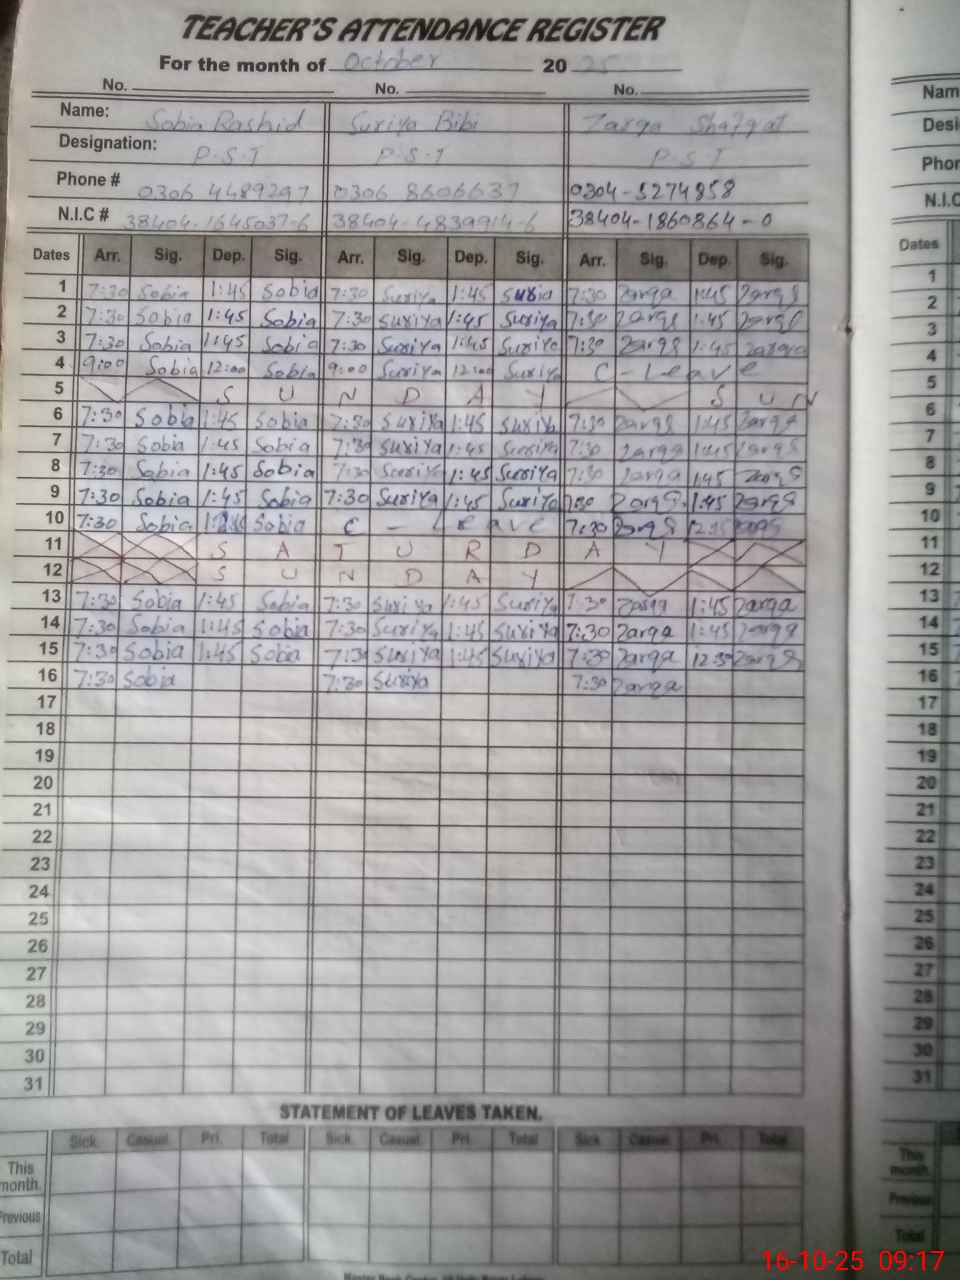 TEACHER'S ATTENDANCE REGISTER
For the month of October 20 25
No. No. No.
Name: Sobia Rashid Suriya Bibi Zarqa Shafqat
Designation: P.S.T P.S.T P.S.T
Phone # 0306 4489297 0306 8606637 0304-5274858
N.I.C # 38404-1645037-6 38404-4839914-6 38404-1860864-0
Dates Arr. Sig. Dep. Sig. Arr. Sig. Dep. Sig. Arr. Sig. Dep. Sig.
1 7:30 Sobia 1:45 Sobia 7:30 Suriya 1:45 Suria 7:30 Zarqa 1:45 Zarqa
2 7:30 Sobia 1:45 Sobia 7:30 Suriya 1:45 Suriya 7:30 Zarqa 1:45 Zarqa
3 7:30 Sobia 1:45 Sobia 7:30 Suriya 1:45 Suriya 7:30 Zarqa 1:45 Zarqa
4 9:00 Sobia 12:00 Sobia 9:00 Suriya 12:00 Suriya C - Leave
5 S U N D A Y S U N
6 7:30 Sobia 1:45 Sobia 7:30 Suriya 1:45 Suriya 7:30 Zarqa 1:45 Zarqa
7 7:30 Sobia 1:45 Sobia 7:30 Suriya 1:45 Suriya 7:30 Zarqa 1:45 Zarqa
8 7:30 Sobia 1:45 Sobia 7:30 Suriya 1:45 Suriya 7:30 Zarqa 1:45 Zarqa
9 7:30 Sobia 1:45 Sobia 7:30 Suriya 1:45 Suriya 7:30 Zarqa 1:45 Zarqa
10 7:30 Sobia Sobia C - Leave 7:30 Zarqa Zarqa
11 S A T U R D A Y
12 S U N D A Y
13 7:30 Sobia 1:45 Sobia 7:30 Suriya 1:45 Suriya 7:30 Zarqa 1:45 Zarqa
14 7:30 Sobia 1:45 Sobia 7:30 Suriya 1:45 Suriya 7:30 Zarqa 1:45 Zarqa
15 7:30 Sobia 1:45 Sobia 7:30 Suriya 1:45 Suriya 7:30 Zarqa 12:30 Zarqa
16 7:30 Sobia 7:30 Suriya 7:30 Zarqa
17
18
19
20
21
22
23
24
25
26
27
28
29
30
31
STATEMENT OF LEAVES TAKEN.
Sick Casual Pri. Total Sick Casual Pri. Total Sick Casual Pri. Total
This month
Previous
Total
Nam
Desi
Phor
N.I.C
Dates
1
2
3
4
5
6
7
8
9
10
11
12
13
14
15
16
17
18
19
20
21
22
23
24
25
26
27
28
29
30
31
This month
Previous
Total
16-10-25 09:17